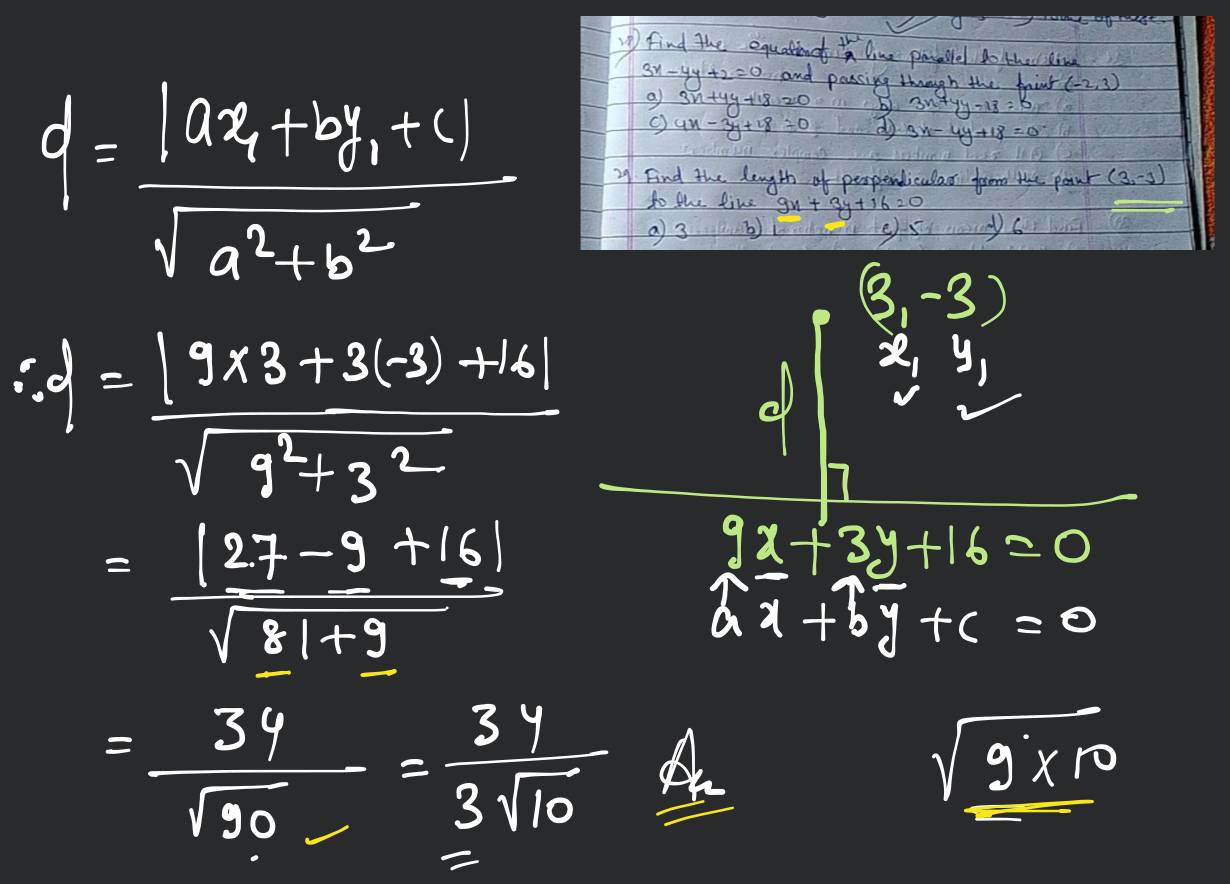 28) Find the equation of the line parallel to the line
3x-4y+2=0 and passing through the point (-2,3)
a) 3x+4y+18=0 b) 3x+4y-18=0
c) 4x-3y+18=0 d) 3x-4y+18=0
29 Find the length of perpendicular from the point (3,-3)
to the line 9x+3y+16=0
a) 3 b) 1 c) 5 d) 6
d = |ax₁+by₁+c|
√a²+b²
∴d = |9×3+3(-3)+16|
√9²+3²
= |27-9+16|
√81+9
= 34
√90
= 34
3√10
Ans
(3,-3)
x₁ y₁
d
9x+3y+16=0
ax+by+c=0
√9×10